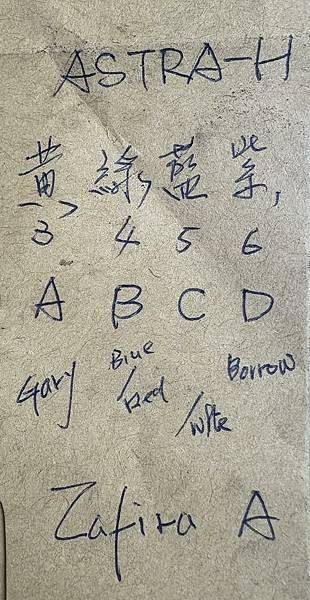 ASTRA-H
黄 綠 藍 紫,
3 4 5 6
A B C D
Gary Blue/Red /wite Borrow
Zafira A